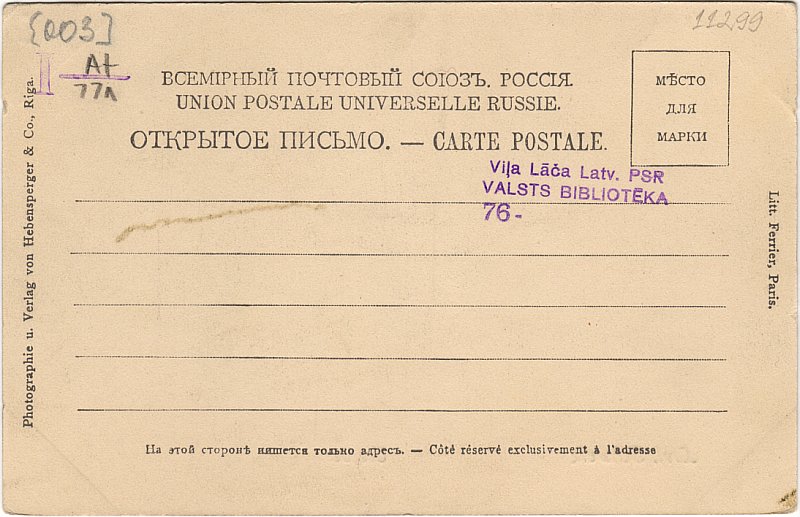 [003]
11299
I At
77л
ВСЕМІРНЫЙ ПОЧТОВЫЙ СОЮЗЪ. РОССІЯ.
UNION POSTALE UNIVERSELLE RUSSIE.
ОТКРЫТОЕ ПИСЬМО. — CARTE POSTALE.
МѢСТО
ДЛЯ
МАРКИ
Viļa Lāča Latv. PSR
VALSTS BIBLIOTĒKA
76-
Photographie u. Verlag von Hebensperger & Co., Riga.
Litt. Ferrier, Paris.
На этой сторонѣ пишется только адресъ. — Côté réservé exclusivement à l'adresse